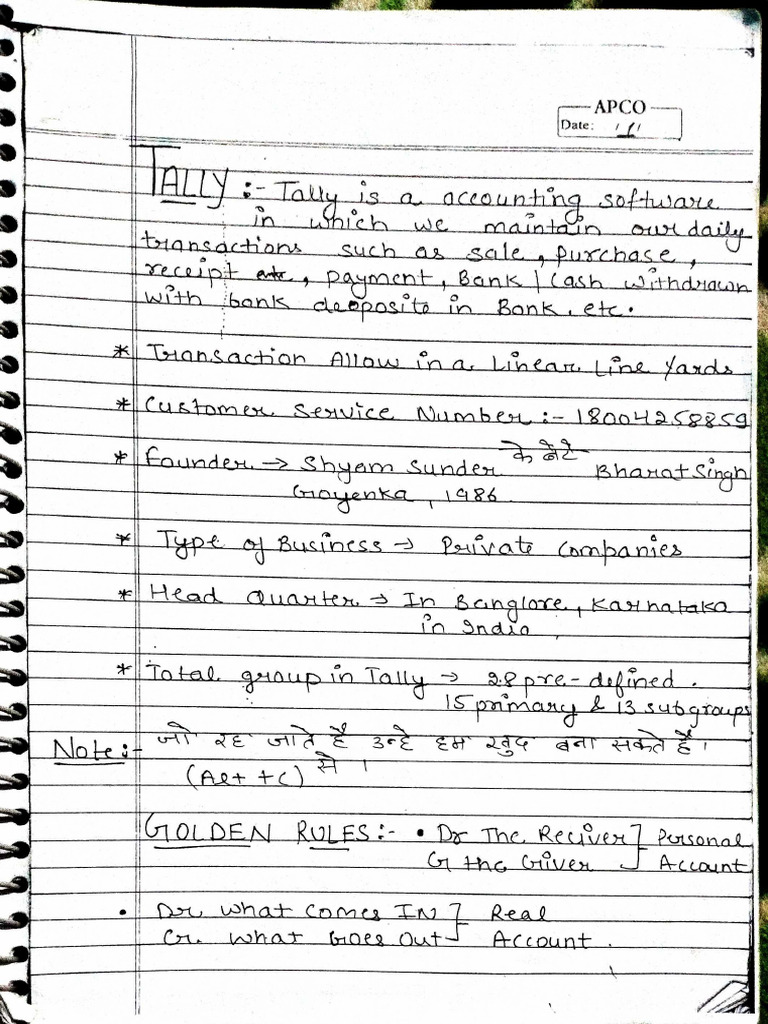 APCO
Date:
TALLY :- Tally is a accounting software
in which we maintain our daily
transactions such as sale, purchase,
receipt , payment, Bank | Cash withdrawn
with bank deoposite in Bank. etc.
* Transaction Allow in a Linear Line Yards
* Customer Service Number :- 18004258859
* Founder → Shyam Sunder के बेटे Bharat Singh
Goyenka, 1986
* Type of Business → Private Companies
* Head Quarter → In Banglore, Karnataka
in India
* Total group in Tally → 28 pre-defined.
15 primary & 13 subgroups
Note:- जो रह जाते है उन्हे हम खुद बना सकते है।
(Alt + C) से ।
GOLDEN RULES:- • Dr The Reciver ] Personal
Cr the Giver ] Account
• Dr. What Comes IN ] Real
Cr. What Goes Out ] Account.